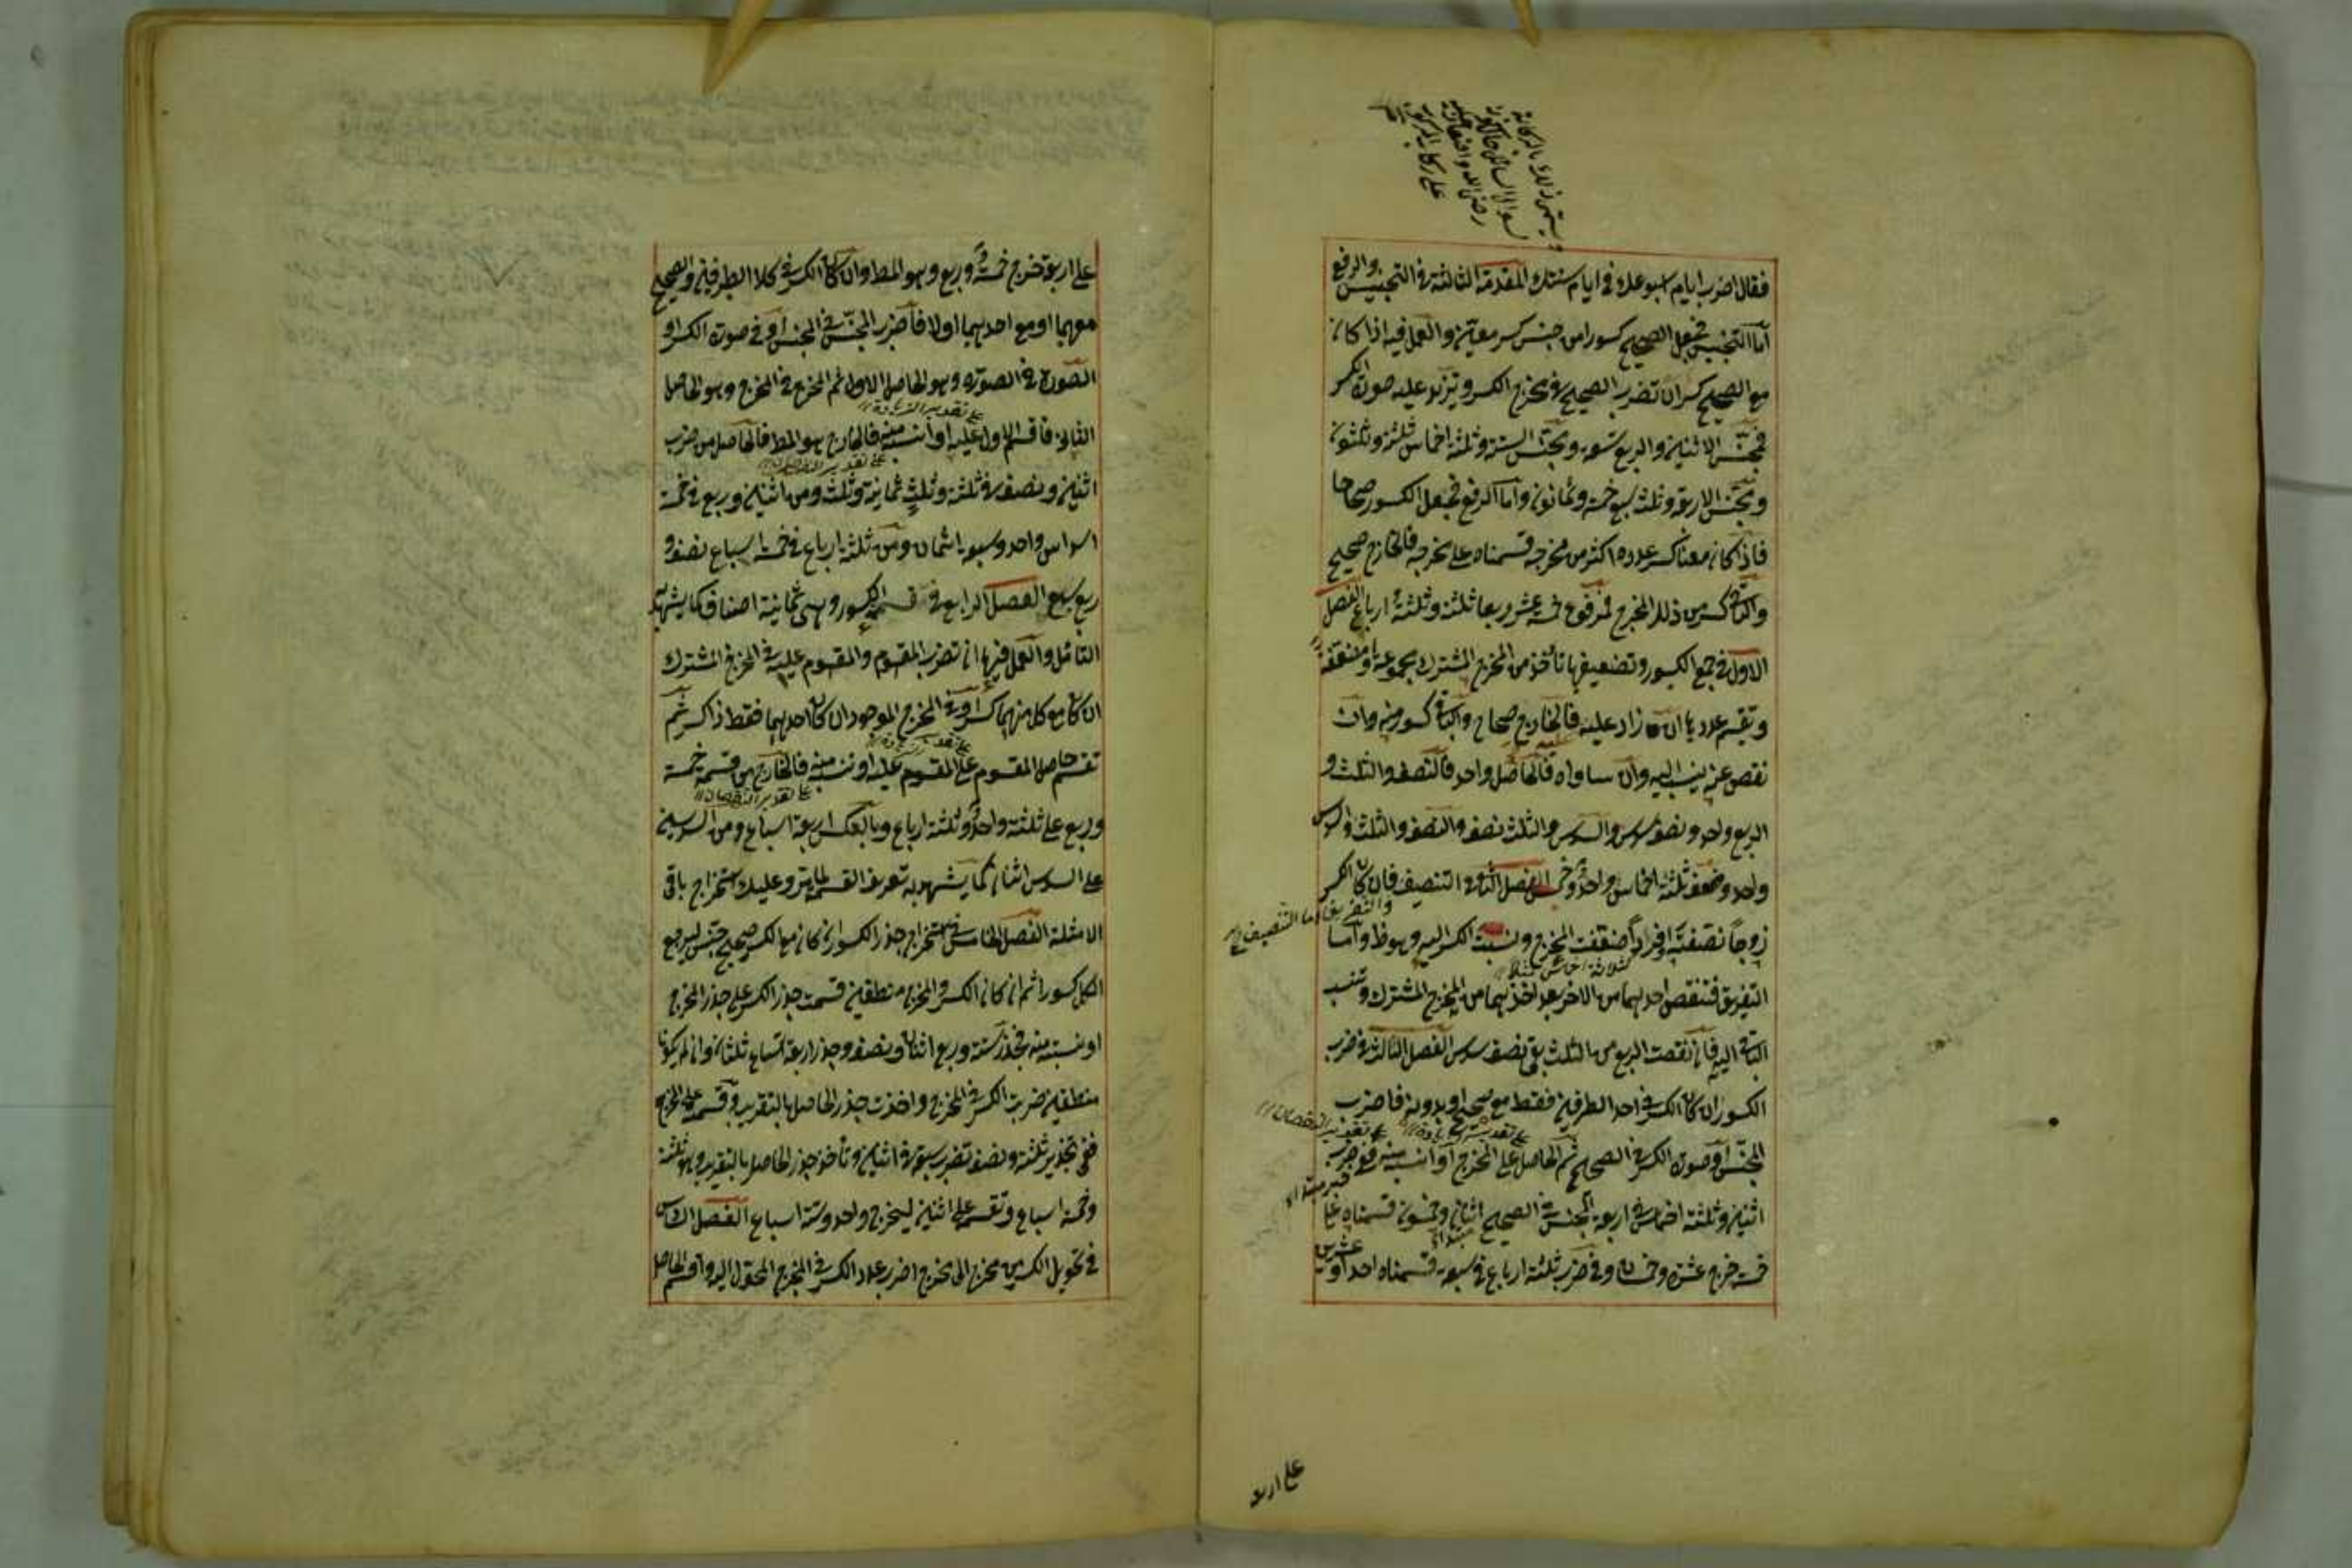 فقال اضرب ايام اسبوعك في ايام سنتك المقدمة الثالثة في التجنيس والرفع
اما التجنيس فجعل الصحيح كسورا من جنس كسر معين والعمل فيه اذا كان
مع الصحيح كسر ان تضرب الصحيح في مخرج الكسر وتزيد عليه صورة الكسر
فمجنس الاثنين والربع تسعة ومجنس الستة وثلثة اخماس ثلثة وثلثون
ومجنس الاربعة وثلث سبع خمسة وثمانون واما الرفع فجعل الكسور صحاحا
فاذا كان معنا كسر عدده اكثر من مخرجه قسمناه على مخرجه فالخارج صحيح
والباقي كسر من ذلك المخرج فمرفوع خمسة عشر ربعا ثلثة وثلثة ارباع الفصل
الاول في جمع الكسور وتضعيفها تأخذ من المخرج المشترك مجموعة او مضعفة
وتقسم عددها ان زاد عليه فالخارج صحاح والباقي كسور منه وان
نقص عنه ينسب اليه وان ساواه فالحاصل واحد فالنصف والثلث و
الربع واحد ونصف سدس والسدس والثلث نصف والنصف والثلث والسدس
واحد وضعف ثلثة اخماس واحد وخمس الفصل الثاني في التنصيف فان كان الكسر
والتفريق اما التنصيف
زوجا نصفته او فردا ضعفت المخرج ونسبت الكسر اليه وهو ظ واما
التفريق فتنقص احدهما من الاخر بعد اخذهما من المخرج المشترك وتنسب
الباقي اليه فان نقصت الربع من الثلث بقي نصف سدس الفصل الثالث في ضرب
الكسور ان كان الكسر في احد الطرفين فقط مع صحيح او بدونه فاضرب
على تقدير الزيادة
على تقدير النقصان
المجنس او صورة الكسر في الصحيح ثم الحاصل على المخرج او انسب منه ففي ضرب
اثنين وثلثة اخماس في اربعة المجنس في الصحيح اثنان وخمسون قسمناه على
خمسة خرج عشرة وخمسان وفي ضرب ثلثة ارباع في سبعة قسمناه احدا وعشرين
على اربعة
على اربعة خرج خمسة وربع وهو المط وان كان الكسر في كلا الطرفين والصحيح
معهما او مع احدهما او لا فاضرب المجنس في المجنس او في صورة الكسر او
الصورة في الصورة وهو الحاصل الاول ثم المخرج في المخرج وهو الحاصل
على تقدير الزيادة
الثاني فاقسم الاول عليه او انسبه منه فالخارج هو المط فالحاصل من ضرب
على تقدير النقصان
اثنين ونصف في ثلثة وثلث ثمانية وثلث ومن اثنين وربع في خمسة
اسداس واحد وسبعة اثمان ومن ثلثة ارباع في خمسة اسباع نصف و
ربع سبع الفصل الرابع في قسمة الكسور وهي ثمانية اصناف كما يشهد به
التأمل والعمل فيها ان تضرب المقسوم والمقسوم عليه في المخرج المشترك
ان كان مع كل منهما كسر او في المخرج الموجود ان كان احدهما فقط ذا كسر ثم
على تقدير الزيادة
تقسم حاصل المقسوم على المقسوم عليه او تنسبه منه فالخارج من قسمة خمسة
على تقدير النقصان
وربع على ثلثة واحد وثلثة ارباع وبالعكس اربعة اسباع ومن السدسين
على السدس اثنان كما يشهد به تعريف القسمة لما مر وعليك استخراج باقي
الامثلة الفصل الخامس في استخراج جذر الكسور ان كان مع الكسر صحيح جنس ليرجع
الكل كسورا ثم ان كان الكسر والمخرج منطقين قسمت جذر الكسر على جذر المخرج
او نسبته منه فجذر ستة وربع اثنان ونصف وجذر اربعة اتساع ثلثان وان لم يكونا
منطقين ضربت الكسر في المخرج واخذت جذر الحاصل بالتقريب وقسمته على المخرج
ففي تجذير ثلثة ونصف تضرب سبعة في اثنين وتأخذ جذر الحاصل بالتقريب وهو ثلثة
وخمسة اسباع وتقسمه على اثنين ليخرج واحد وستة اسباع الفصل السادس
في تحويل الكسر من مخرج الى مخرج اضرب عدد الكسر في المخرج المحول اليه واقسم الحاصل